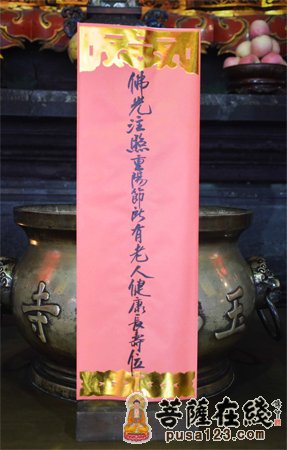 佛光注照重陽節所有老人健康長壽位
寺
玉
菩薩在线
pusa123.com